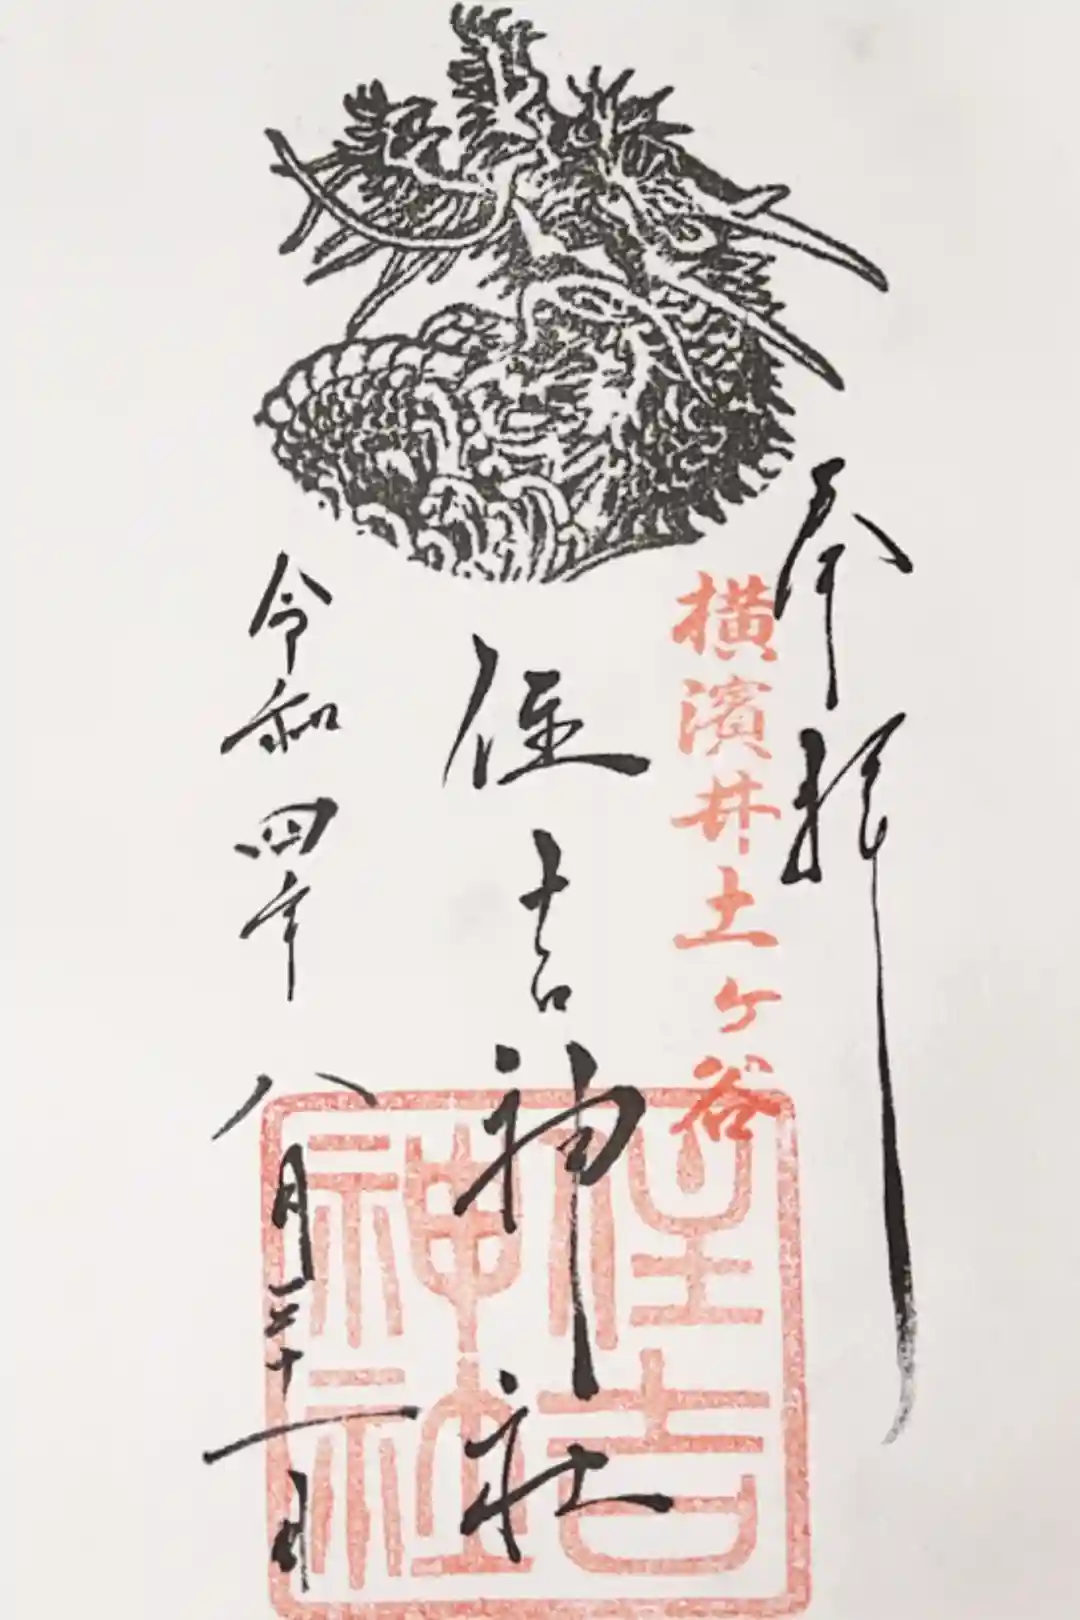 奉拝
横濱井土ヶ谷
住吉神社
住吉神社
令和四年八月三十一日